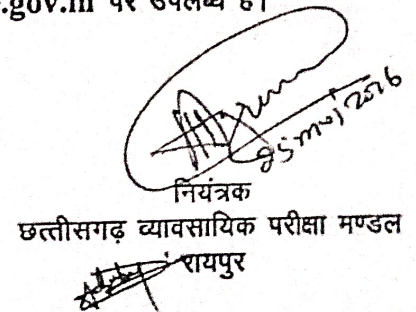 .gov.in पर उपलब्ध है।
नियंत्रक
छत्तीसगढ़ व्यावसायिक परीक्षा मण्डल
रायपुर